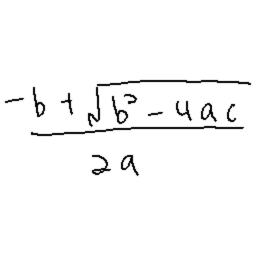 -b + √b² - 4ac
2a